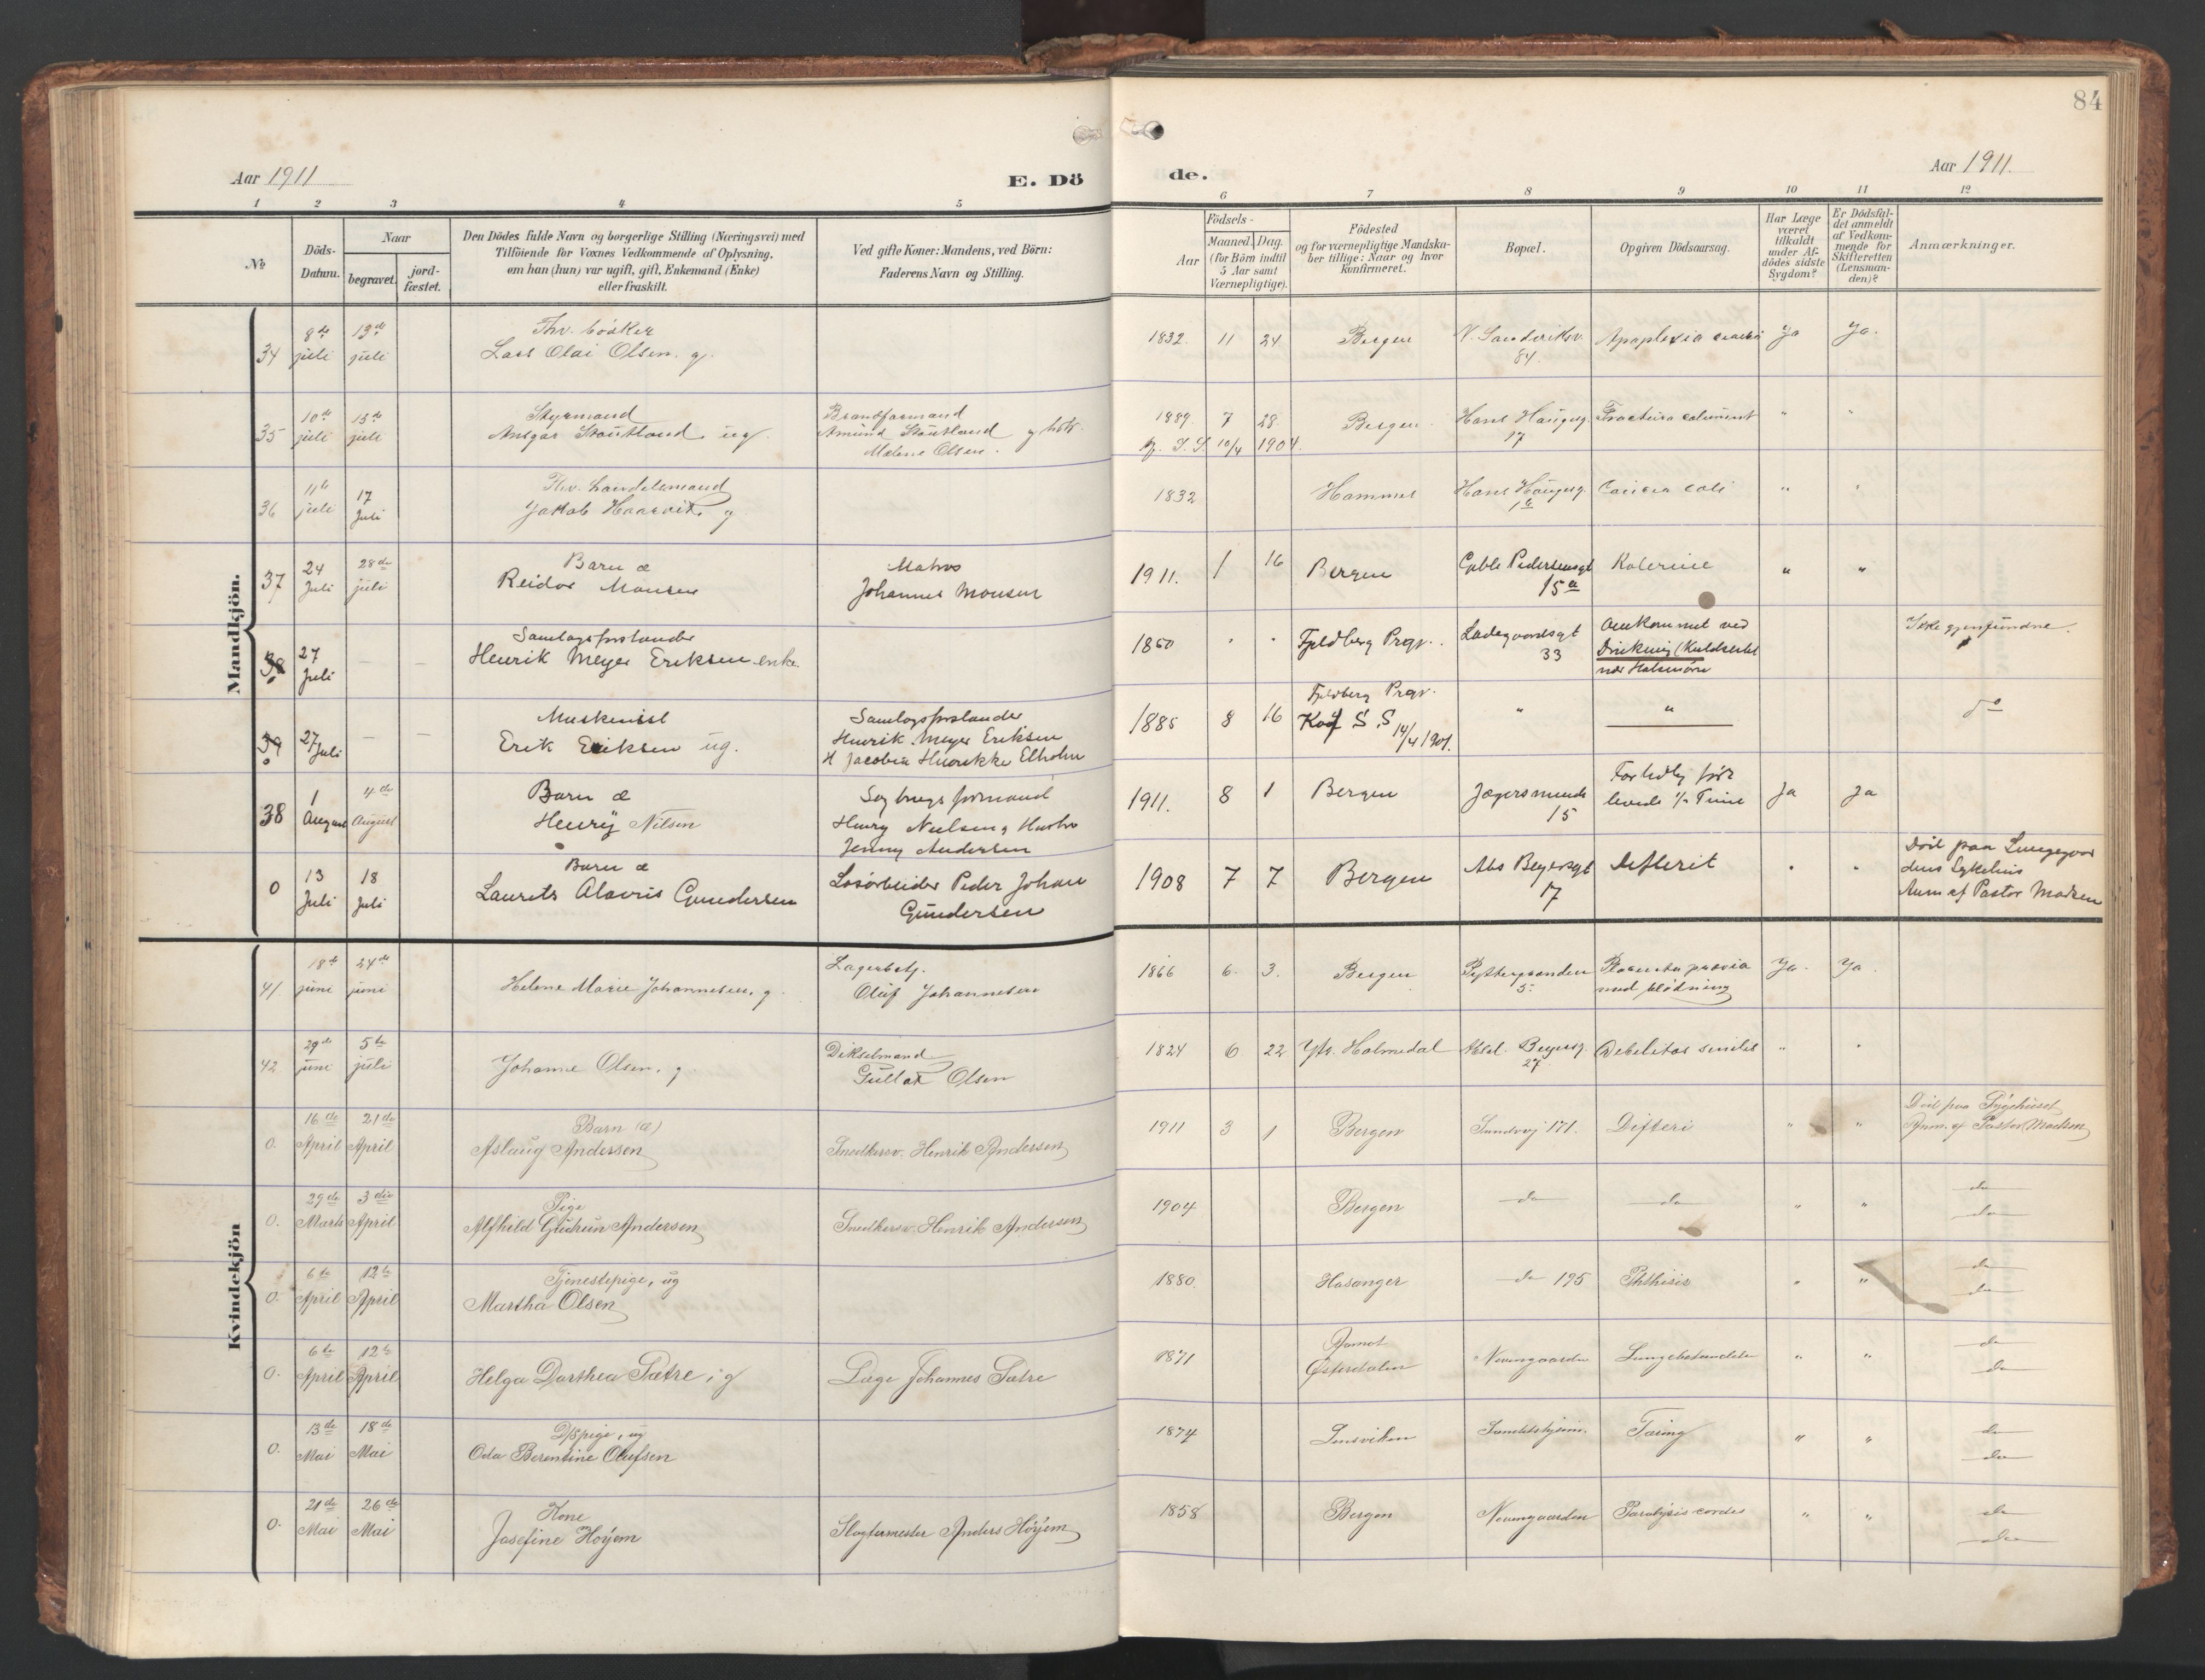 84
Aar 1911
E. Dö
de.
Aar 1911.
1 2 3 4 5 6 7 8 9 10 11 12
No
Döds-
Datum.
Naar
begravet.
jord-
fæstet.
Den Dödes fulde Navn og borgerlige Stilling (Næringsvei) med
Tilföiende for Voxnes Vedkommende af Oplysning,
om han (hun) var ugift, gift, Enkemand (Enke)
eller fraskilt.
Ved gifte Koner: Mandens, ved Börn:
Faderens Navn og Stilling.
Födsels-
Aar
Maaned. Dag.
(for Börn indtil
5 Aar samt
Værnepligtige).
Födested
og for værnepligtige Mandska-
ber tillige: Naar og hvor
konfirmeret.
Bopæl.
Opgiven Dödsaarsag.
Har Læge
været
tilkaldt
under Af-
dödes sidste
Sygdom?
Er Dödsfal-
det anmeldt
af Vedkom-
mende for
Skifteretten
(Lensman-
den)?
Anmærkninger.
Mandkjön.
34 8de juli 13de juli
Lars Olai Olsen. g.
1832. 11 24 Bergen N. 84. Apoplexia Ja Ja.
35 10de juli 15de juli
Styrmand
Ansgar Stautland ug.
Brandformand
Amund Stautland g. hstr.
Malene Olsen.
1889. 7 28. Bergen Hans Haugesg. 17 " "
10/4 1904.
36 11te juli 17 Juli
Thv. Handelsmand
Jakob Haarvik g.
1832 Hammer Hans Haugesg. Cancer coli " "
37 24 Juli 28de juli
Barn æ
Reidar Monsen
Matros
Johannes Monsen
1911. 1 16 Bergen Gable Pedersensgt 15a Kolerine " "
38 27 Juli — —
Samlagsforstander
Henrik Meyer Eriksen enke
1850 " " Fjeldberg Prgj. Ladegaardsgt 33
Omkommet ved
Drukning
Ikke gjenfundne.
39 27 Juli — —
Maskinist
Erik Eriksen ug.
Samlagsforstander
Henrik Meyer Eriksen
1885 8 16
Fjeldberg Prgj.
Konf S. S 14/4 1901.
" " do
38 1 August 4de August
Barn æ
Henry Nilsen
formand
Henry Nielsen g Hustru
Jenny Andersen
1911. 8 1 Bergen 15
levede ½ Time
Ja Ja
0 13 Juli 18 Juli
Barn æ
Laurits Gundersen
Løsarbeider Peder Johan
Gundersen
1908 7 7 Bergen Abs Beyersgt 17 Difterit " "
Död paa Lungegaar
dens Sykehus
Anm af Pastor Madsen
Kvindekjön
41. 18de juni 24de juni
Helene Marie Johannesen, g.
Lagerbetj.
Oluf Johannesen
1866 6. 3. Bergen 5. Placenta prævia
med blödning
Ja. Ja.
42. 29de juni 5te juli
Johanne Olsen, g.
Gullak Olsen
1824 6 22 Ytr. Holmedal Absl. Beyersg. 27 Debilitas senilis " "
0. 16de April 21de April
Barn (æ)
Aslaug Andersen
Snedkersv. Henrik Andersen
1911 3 1 Bergen Sandvvj 171. Difteri " "
Död paa Sygehuset
Anm. af Pastor Madsen
0. 29de Marts 3die April
Pige
Alfhild Gudrun Andersen
Snedkersv. Henrik Andersen
1904 Bergen do do " "
do
do
0. 6te April 12te April
Tjenestepige, ug
Martha Olsen
1880 do 195 Phthisis " "
do
do
0. 6te April 12te April
Helga Dorthea Sætre, g
Læge Johannes Sætre
1871
Aamot
Østerdalen
Lungebetændelse " "
do
do
0. 13de Mai 18de Mai
D/spige, ug
Oda Berentine Olufsen
1874 Lensviken Tæring " "
do
do
0. 21de Mai 26de Mai
Kone
Josefine Höyem
Slagtermester Anders Höyem
1858 Bergen Paralysis cordis " "
do
do